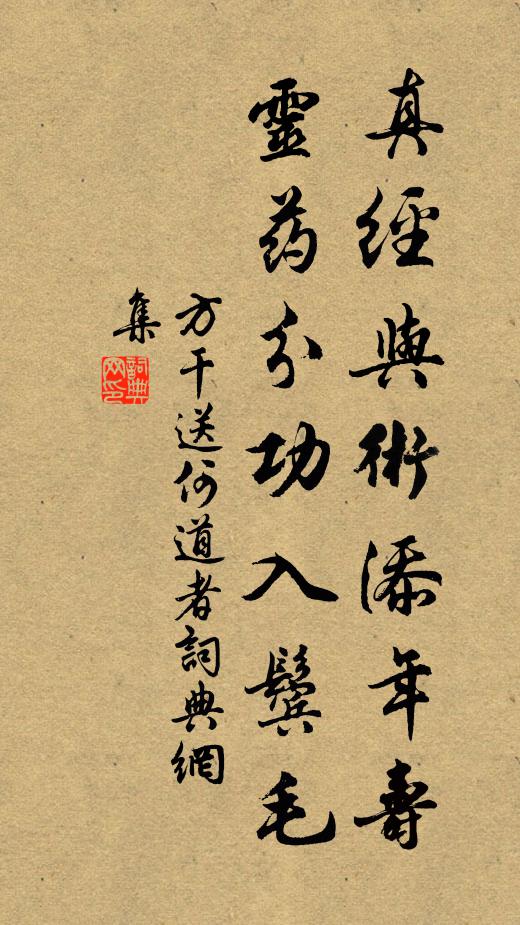 真經與術添年壽
靈药分功入鬢毛
方干送何道者詞典網
集
詞典
网印